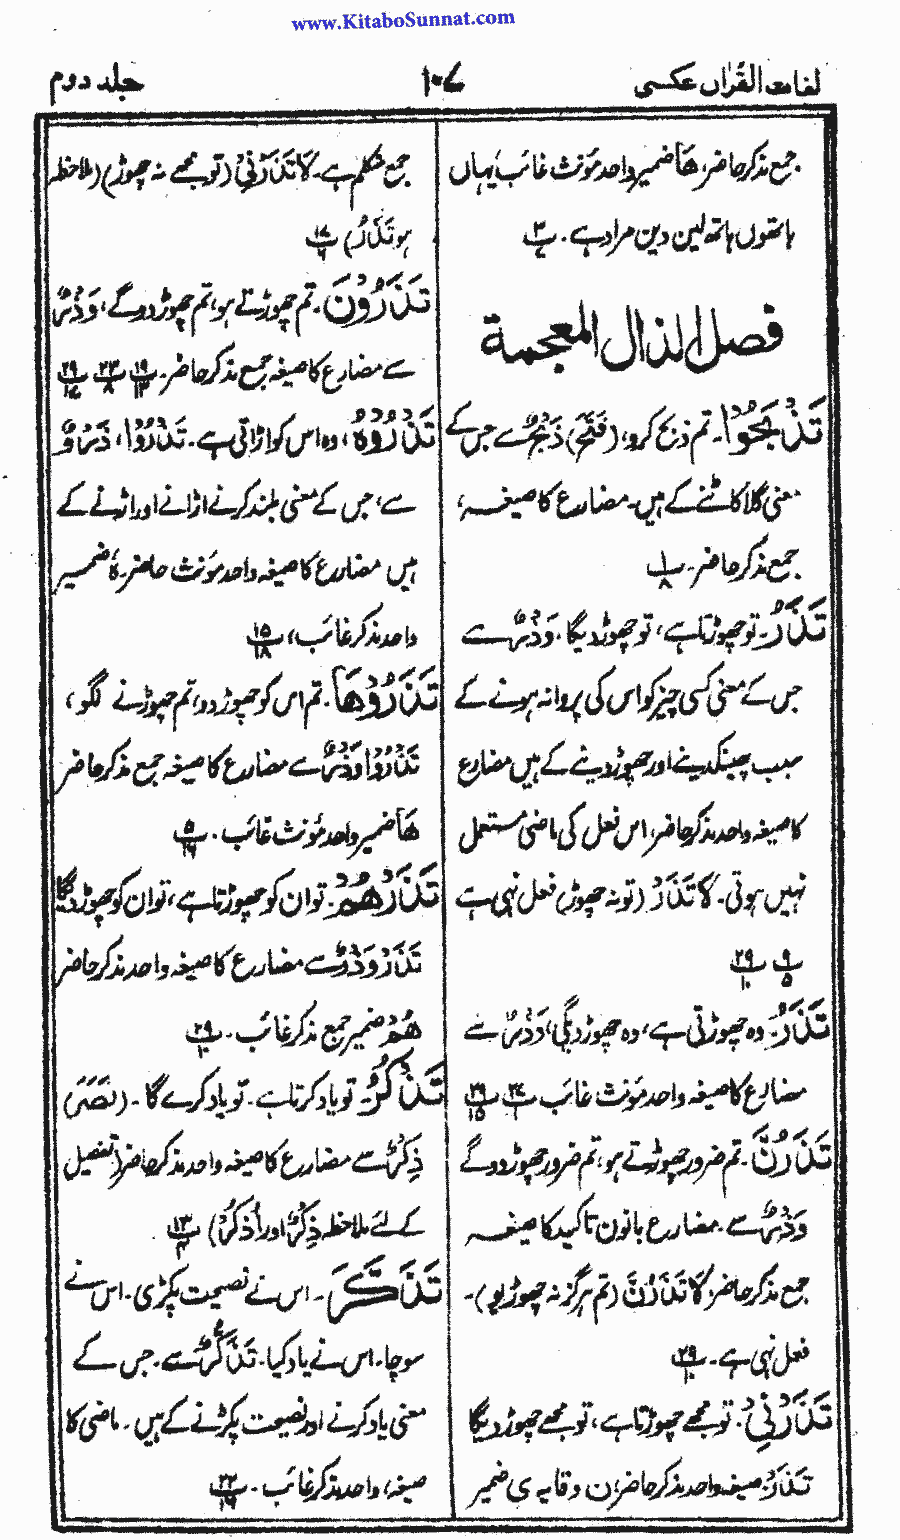 www.KitaboSunnat.com
لغات القرآن عکسی
۱۰۷
جلد دوم
جمع مذکر حاضر، ھَا ضمیر واحد مؤنث غائب یہاں
ہاتھوں ہاتھ لین دین مراد ہے۔ پ ۳
فصل الذال المعجمة
تَذْبَحُوْا۔ تم ذبح کرو، (فَتَحَ) ذَبْحٌ سے جس کے
معنی گلا کاٹنے کے ہیں۔ مضارع کا صیغہ،
جمع مذکر حاضر۔ پ ۱ ۸
تَذَرُ۔ تو چھوڑتا ہے، تو چھوڑ دیگا۔ وَذْرٌ سے
جس کے معنی کسی چیز کو اس کی پروا نہ ہونے کے
سبب پھینک دینے اور چھوڑ دینے کے ہیں مضارع
کا صیغہ واحد مذکر حاضر، اس فعل کی ماضی مستعمل
نہیں ہوتی۔ لَا تَذَرْ (تو نہ چھوڑ) فعل نہی ہے
پ ۹ ۵ پ ۲۹ ۱۰
تَذَرُ۔ وہ چھوڑتی ہے، وہ چھوڑ دیگی، وَذْرٌ سے
مضارع کا صیغہ واحد مؤنث غائب پ ۲۷ ۲ پ ۲۹ ۱۵
تَذَرُنَّ۔ تم ضرور چھوڑتے ہو، تم ضرور چھوڑ دو گے
وَذْرٌ سے۔ مضارع بانون تاکید کا صیغہ
جمع مذکر حاضر، لَا تَذَرُنَّ (تم ہرگز نہ چھوڑیو)۔
فعل نہی ہے۔ پ ۲۹ ۱۰
تَذَرْنِیْ۔ تو مجھے چھوڑتا ہے، تو مجھے چھوڑ دیگا
تَذَرْ صیغہ واحد مذکر حاضر، ن وقایہ ی ضمیر
جمع متکلم ہے۔ لَا تَذَرْنِیْ (تو مجھے نہ چھوڑ) (ملاحظہ
ہو تَذَرُ) پ ۱۷ ۶
تَذَرُوْنَ۔ تم چھوڑتے ہو، تم چھوڑ دو گے، وَذْرٌ
سے مضارع کا صیغہ جمع مذکر حاضر۔ پ ۱۹ ۱۳ پ ۲۳ ۸ پ ۲۹ ۱۷
تَذْرُوْهُ، وہ اس کو اڑاتی ہے۔ تَذْرُوْا، ذَرْوٌ
سے، جس کے معنی بلند کرنے اڑانے اور اڑنے کے
ہیں مضارع کا صیغہ واحد مؤنث حاضر۔ هُ ضمیر
واحد مذکر غائب، پ ۱۵ ۱۸
تَذَرُوْهَا۔ تم اس کو چھوڑ دو، تم چھوڑنے لگو،
تَذَرُوْا وَذْرٌ سے مضارع کا صیغہ جمع مذکر حاضر
ھَا ضمیر واحد مؤنث غائب۔ پ ۵ ۱۶
تَذَرْهُمْ۔ تو ان کو چھوڑتا ہے، تو ان کو چھوڑ دیگا
تَذَرْ وَذْرٌ سے مضارع کا صیغہ واحد مذکر حاضر
هُمْ ضمیر جمع مذکر غائب۔ پ ۲۹ ۱۰
تَذْكُرُ۔ تو یاد کرتا ہے۔ تو یاد کرے گا۔ (نَصَرَ)
ذِکْرٌ سے مضارع کا صیغہ واحد مذکر حاضر (تفصیل
کے لئے ملاحظہ ذِکْرٌ اور اُذْکُرْ) پ ۱۳ ۴
تَذَكَّرَ۔ اس نے نصیحت پکڑی۔ اس نے
سوچا۔ اس نے یاد کیا۔ تَذَکُّرٌ سے۔ جس کے
معنی یاد کرنے اور نصیحت پکڑنے کے ہیں۔ ماضی کا
صیغہ، واحد مذکر غائب۔ پ ۲۲ ۱۶